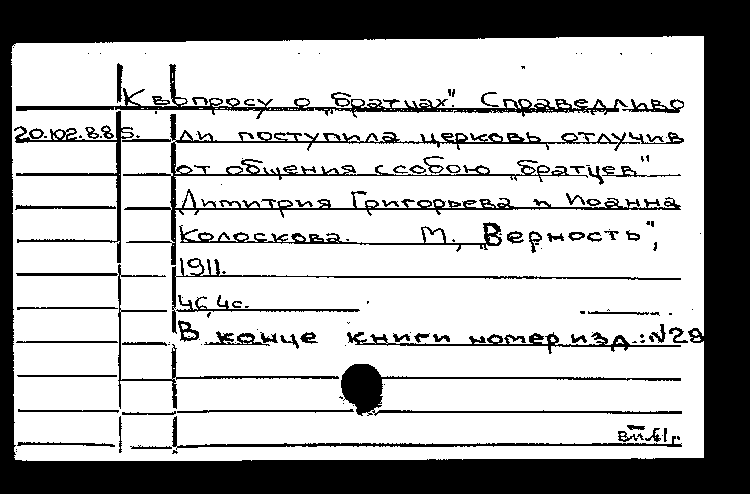 К вопросу о „братцах". Справедливо
20.102.8.8 5. ли поступила церковь, отлучив
от общения с собою „братцев"
Димитрия Григорьева и Иоанна
Колоскова. М., „Верность",
1911.
4с.
В конце книги номер изд.: №28